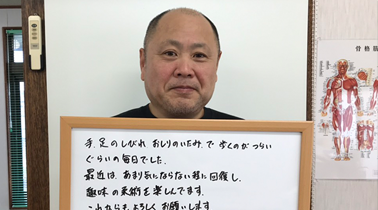 手、足のしびれ おしりのいたみ で 歩くのが つらい
ぐらいの毎日でした。
最近は、あまり気にならない様に回復し、
趣味の柔術を楽しんでます。
これからも よろしく お願いします
骨格筋